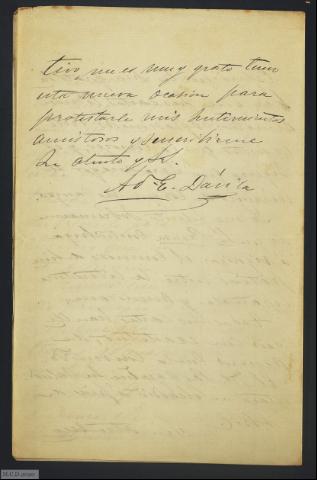 tivo, me es muy grato tener
esta nueva ocasion para
protestarle mis sentimientos
amistosos y suscribirme
Su atento y S.
Ad. E. Dávila